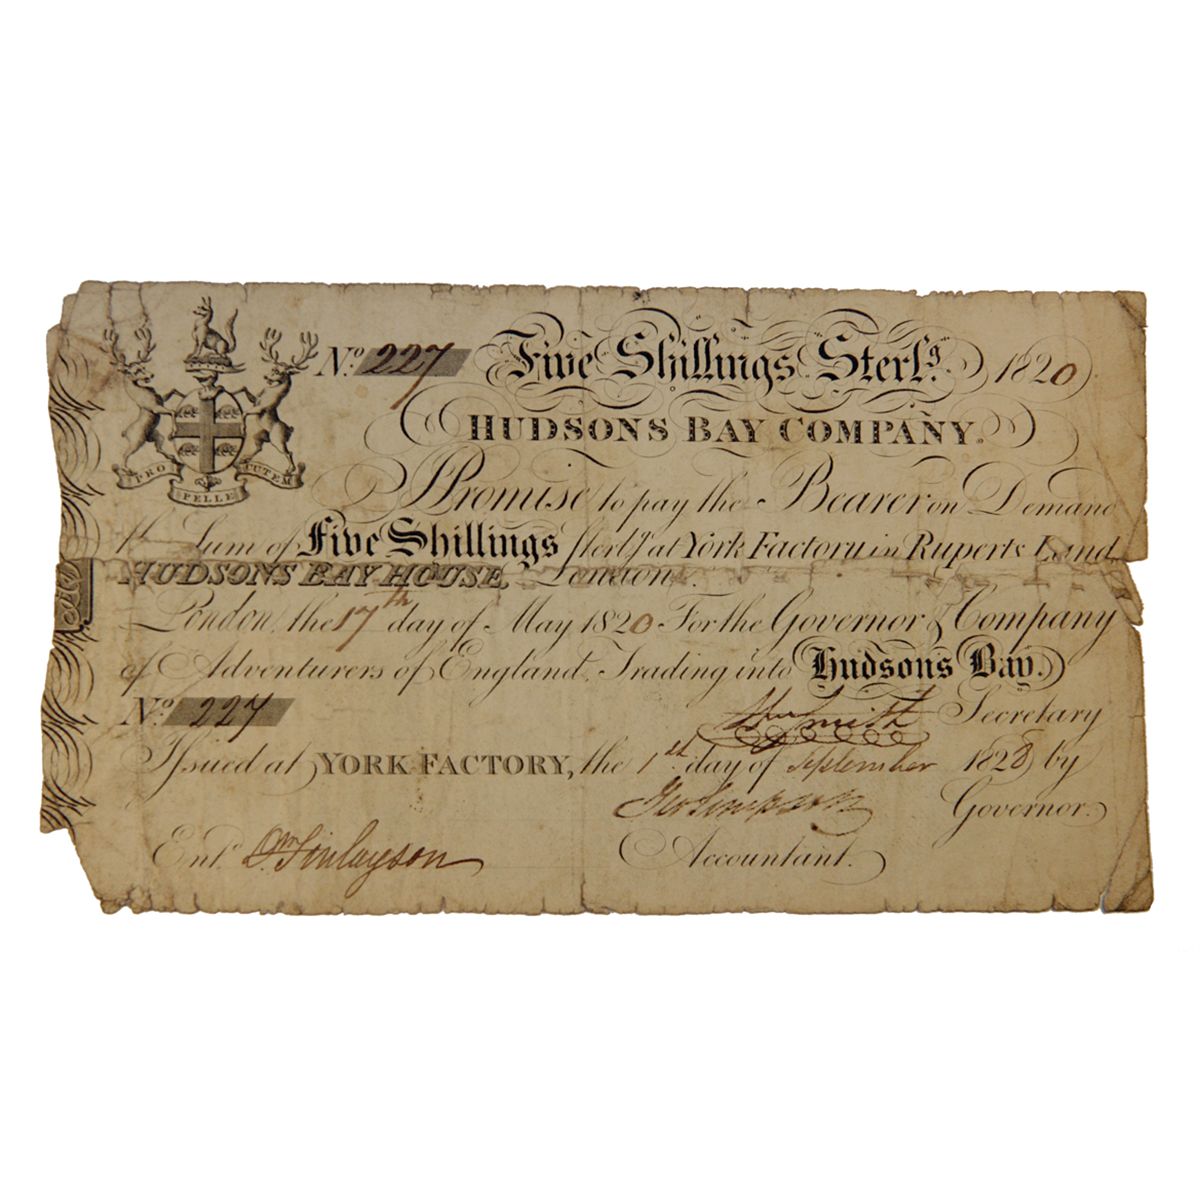 No. 227 Five Shillings Sterlg. 1820
HUDSONS BAY COMPANY.
PRO PELLE CUTEM
I Promise to pay the Bearer on Demand
the Sum of Five Shillings Sterlg. at York Factory in Ruperts Land
HUDSONS BAY HOUSE, London.
London, the 17th day of May 1820 For the Governor & Company
of Adventurers of England Trading into Hudsons Bay.
No. 227
Smith Secretary
Issued at YORK FACTORY, the 1st day of September 1828 by
Geo Simpson Governor.
Entd. Dn. Finlayson Accountant.